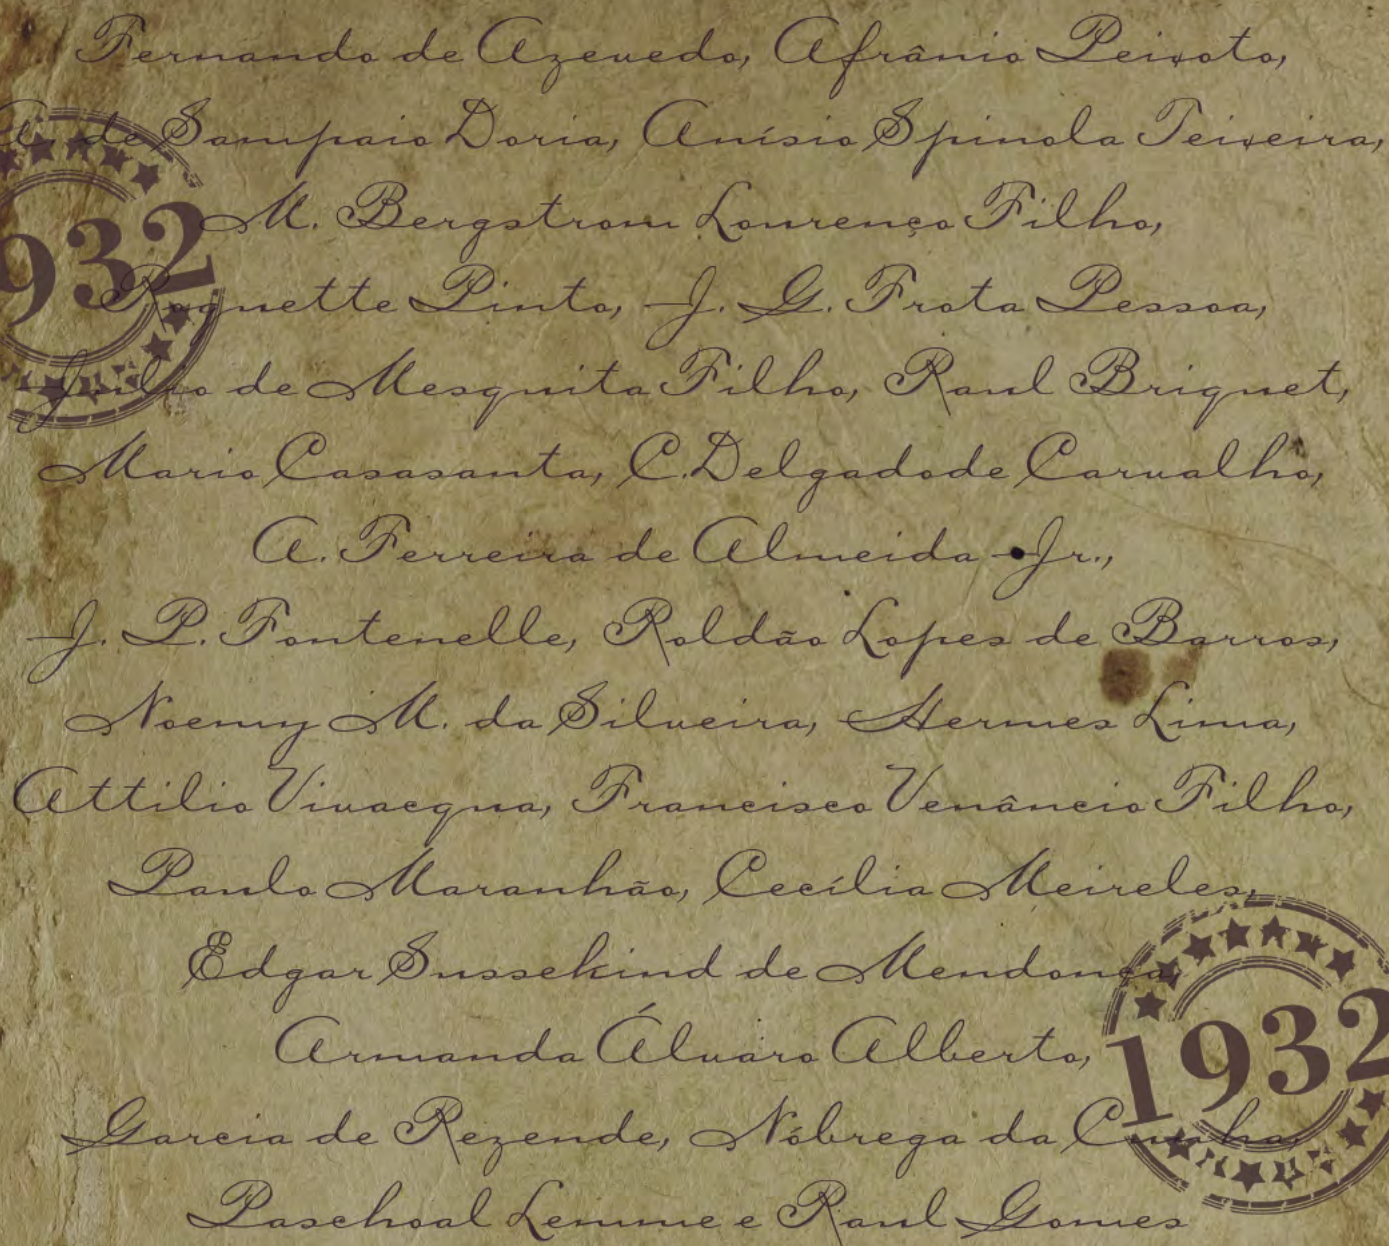 Fernando de Azevedo, Afrânio Peixoto,
A. de Sampaio Doria, Anísio Spinola Teixeira,
1932
M. Bergstrom Lourenço Filho,
Roquette Pinto, J. G. Frota Pessoa,
Julio de Mesquita Filho, Raul Briquet,
Mario Casasanta, C.Delgadode Carvalho,
A. Ferreira de Almeida Jr.,
J. P. Fontenelle, Roldão Lopes de Barros,
Noemy M. da Silveira, Hermes Lima,
Attilio Vivacqua, Francisco Venâncio Filho,
Paulo Maranhão, Cecília Meireles,
Edgar Sussekind de Mendonça,
Armanda Álvaro Alberto,
1932
Garcia de Rezende, Nóbrega da Cunha,
Paschoal Lemme e Raul Gomes